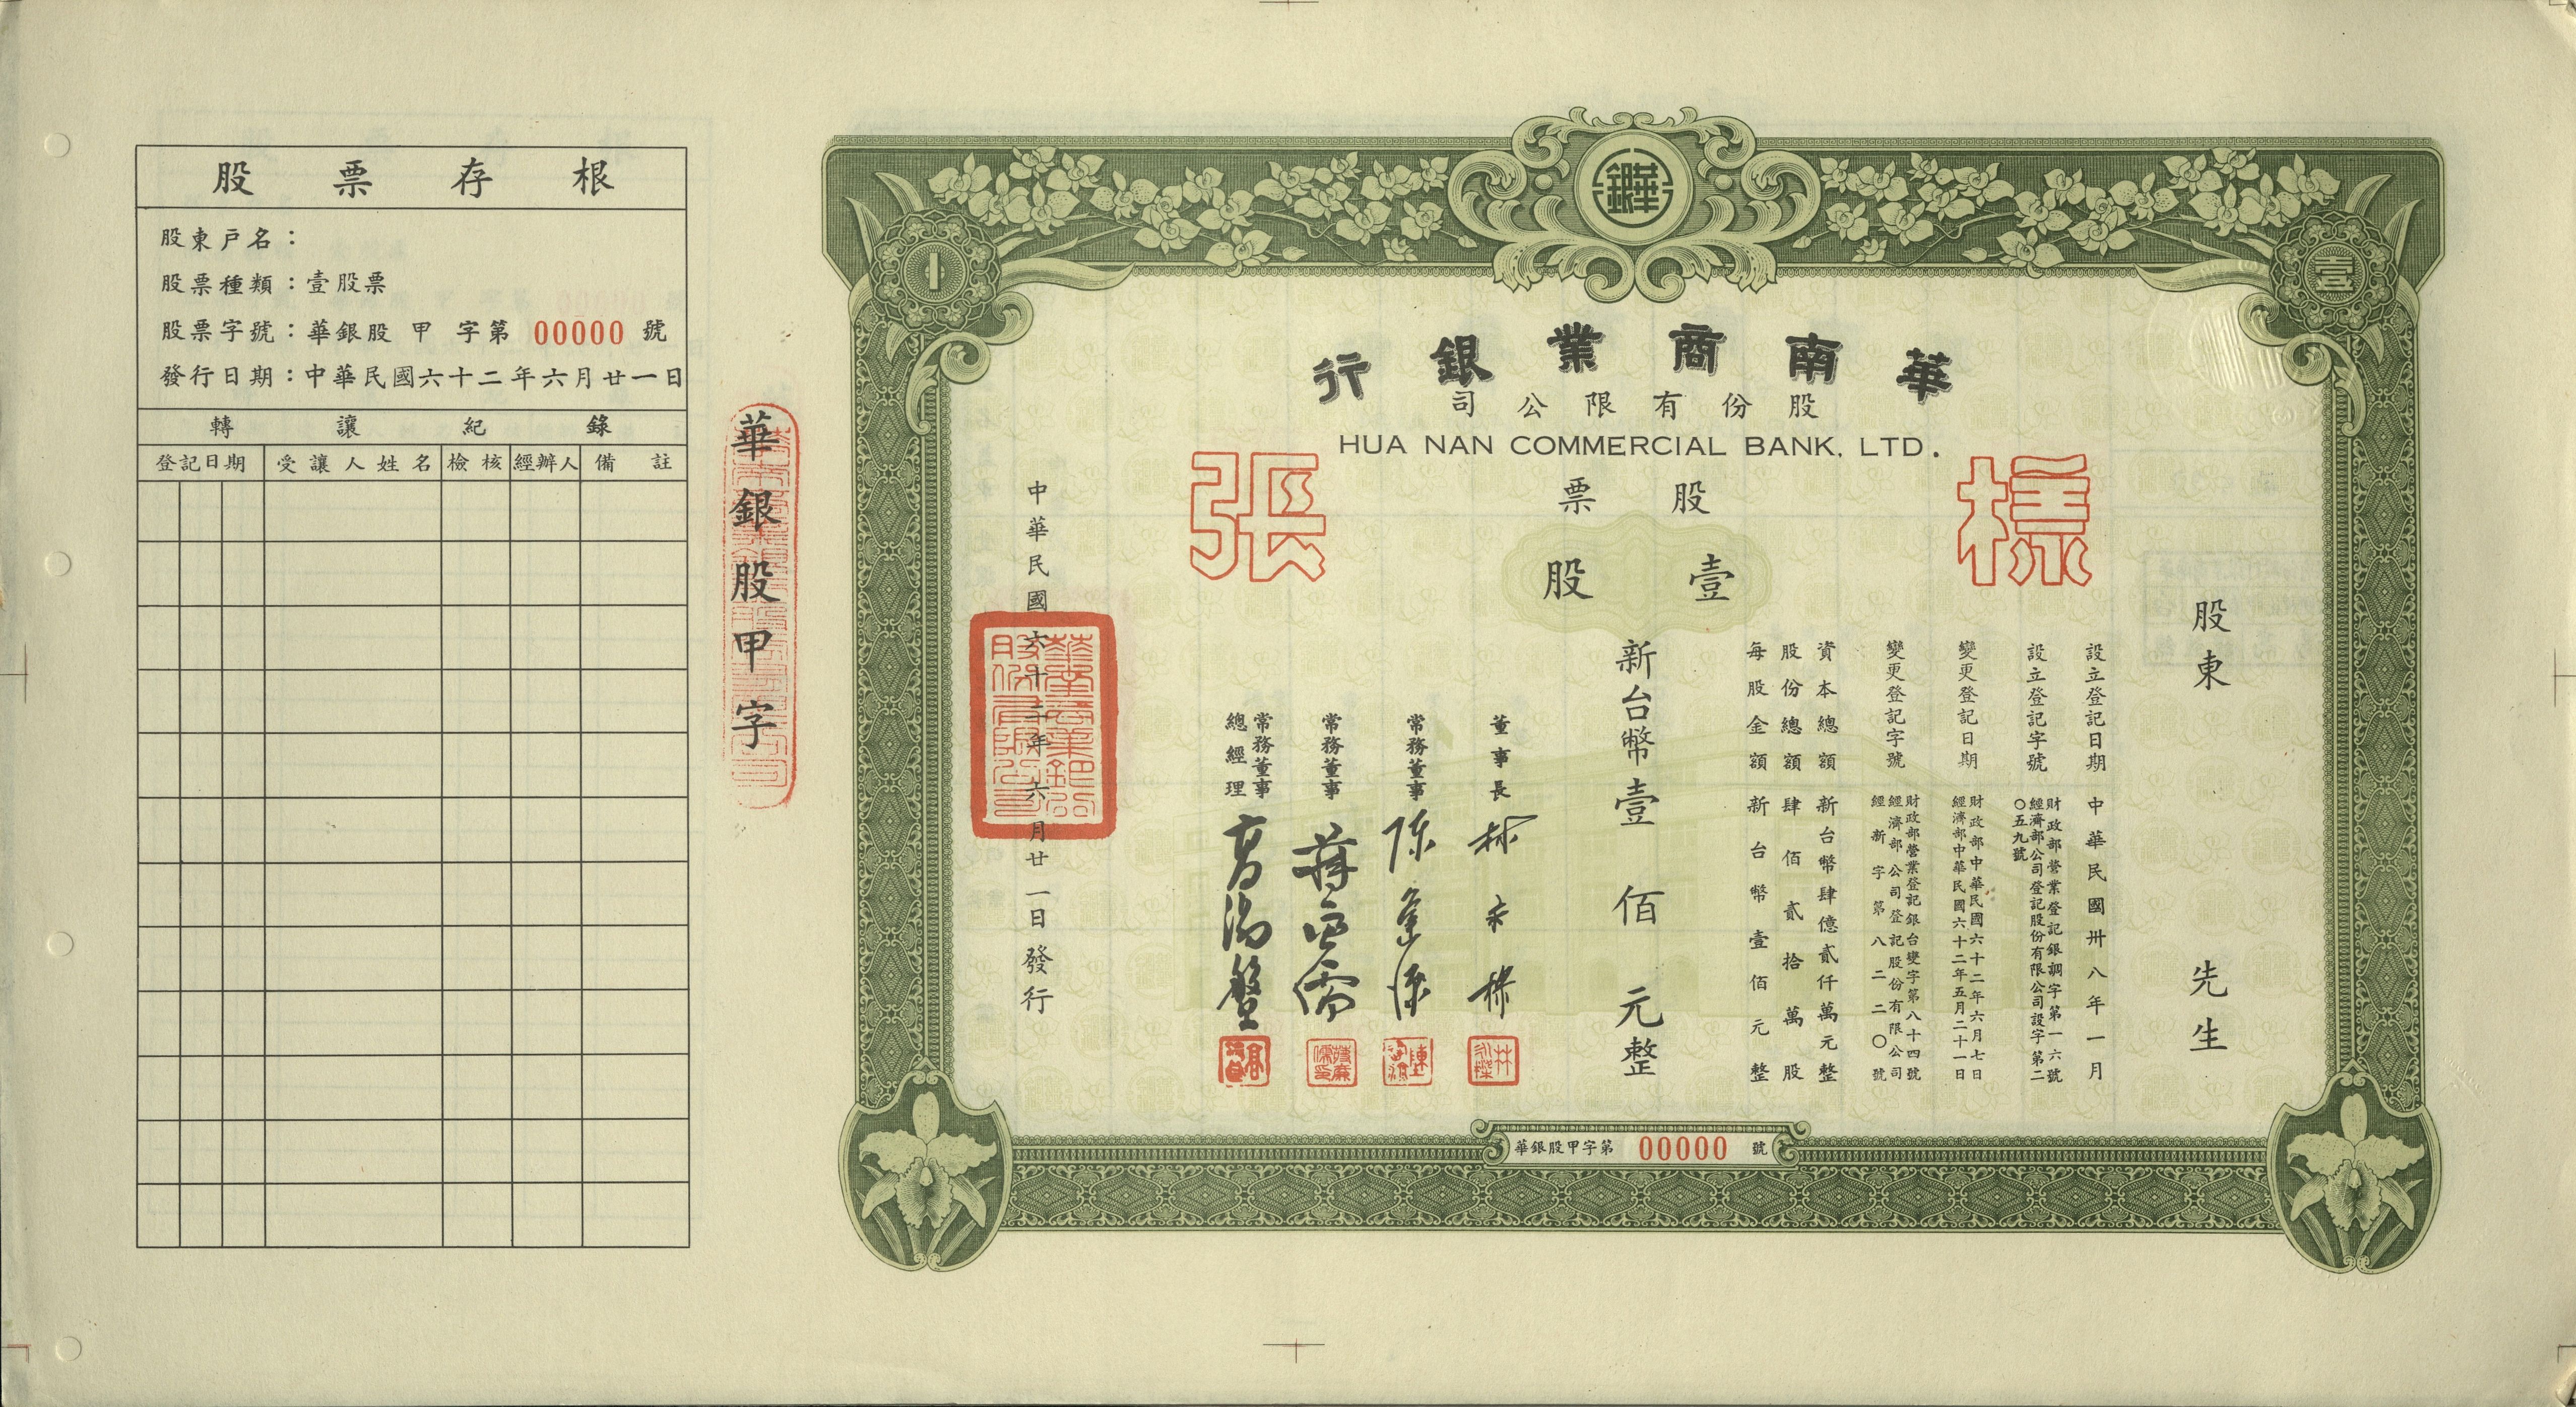 股票存根
股東戶名：
股票種類：壹股票
股票字號：華銀股 甲 字第 00000 號
發行日期：中華民國六十二年六月廿一日
轉讓紀錄
登記日期 受讓人姓名 檢核 經辦人 備註
華銀股甲字
壹
華南商業銀行
股份有限公司
HUA NAN COMMERCIAL BANK, LTD.
樣張
股票
壹股
股東 先生
設立登記日期 中華民國卅八年一月
設立登記字號 財政部營業登記銀調字第一六號
經濟部公司登記股份有限公司設字第二
〇五九號
變更登記日期 財政部中華民國六十二年六月七日
經濟部中華民國六十二年五月二十一日
變更登記字號 財政部營業登記銀台變字第八十四號
經濟部公司登記股份有限公司
經新字第八二二〇號
資本總額 新台幣肆億貳仟萬元整
股份總額 肆佰貳拾萬股
每股金額 新台幣壹佰元整
新台幣壹佰元整
董事長
常務董事
常務董事
常務董事
總經理
中華民國六十二年六月廿一日發行
華南商業銀行
股份有限公司
華銀股甲字第 00000 號